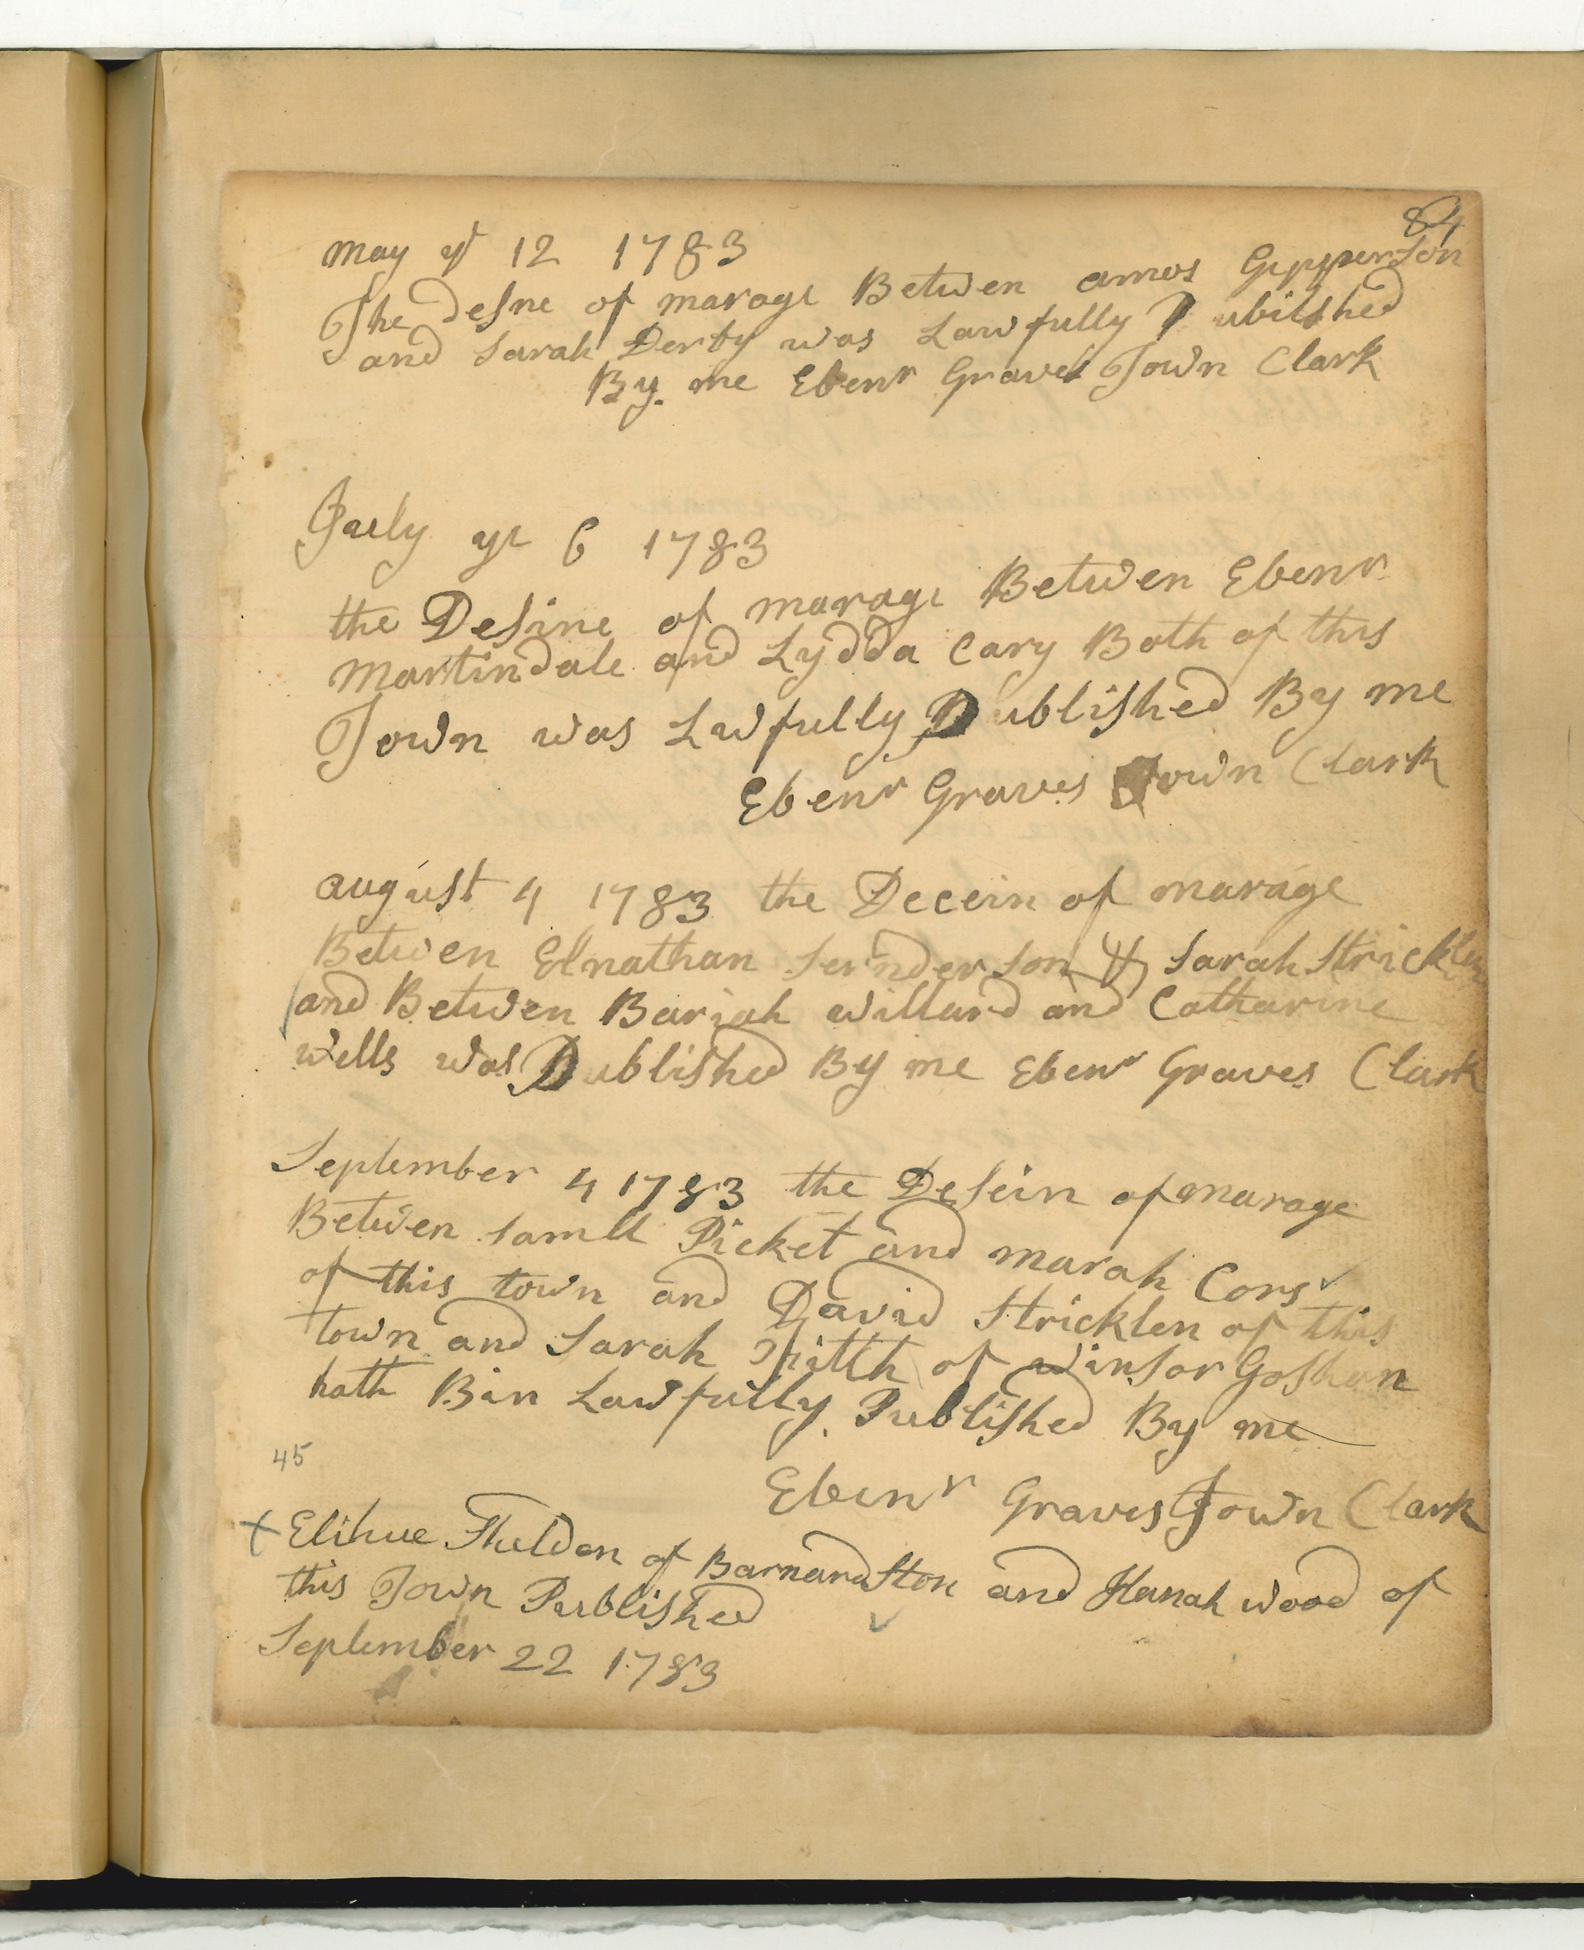 84
may ye 12 1783
The desne of marage Betwen amos Gipperson
and Sarah Derby was Lawfully Publishhed
By me Ebenr Graves Town Clark
July ye 6 1783
the Desine of marage Betwen Ebenr
Martindale and Lydda Cary Both of this
Town was Lwfully Published By me
Ebenr Graves Town Clark
august 4 1783 the Decein of marage
Betwen Elnathan Senderson & Sarah Stricklen
and Betwen Bariah Willard and Catharine
Wells was Published By me Ebenr Graves Clark
September 4 1783 the Desein of marage
Betwen Samll Picket and marah Cors
of this town and David Stricklen of this
town and Sarah of winsor Goshan
hath Bin Lawfully Published By me
Ebenr Graves Town Clark
45
+ Elihue Shelden of Barnardston and Hanah wood of
this Town Published
September 22 1783